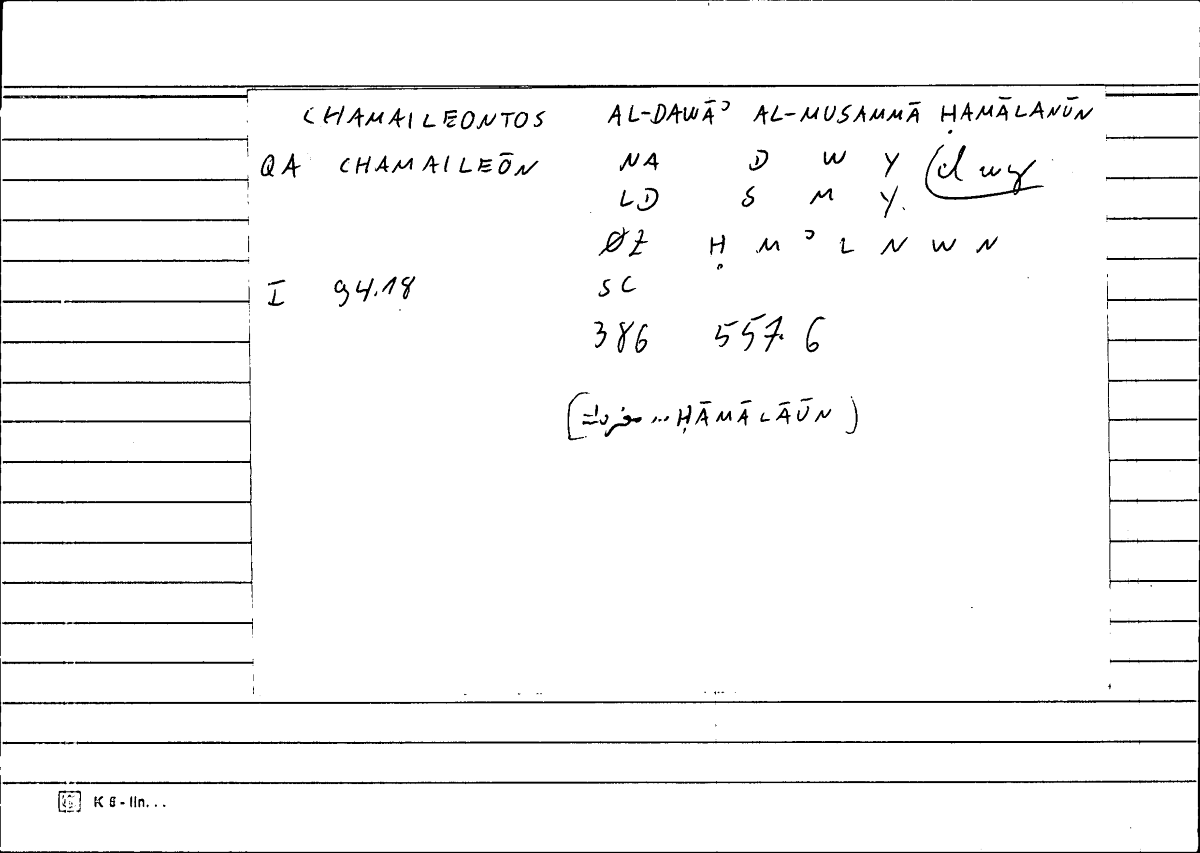 CHAMAILEONTOS AL-DAWĀʾ AL-MUSAMMĀ ḤAMĀLANŪN
QA CHAMAILEŌN NA D W Y (dwy
LD S M Y.
ØZ Ḥ M ʾ L N W N
I 94.18 SC
386 557.6
(... ḤĀMĀLĀŪN)
K 6 - lin...